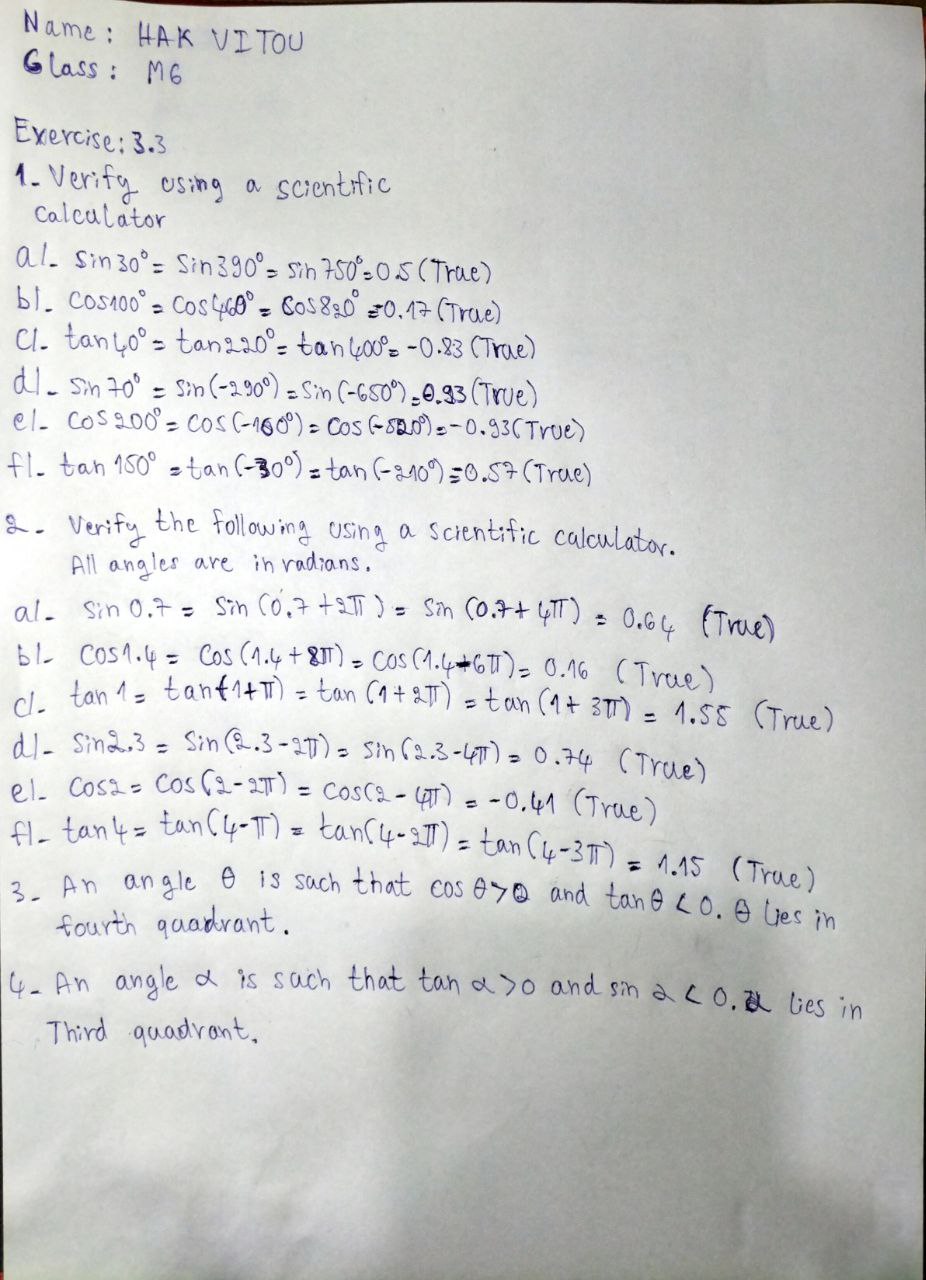 Name: HAK VITOU
Glass: M6
Exercise: 3.3
1- Verify using a scientific
calculator
a/- Sin30° = Sin390° = sin750° = 0.5 (True)
b/- cos100° = cos460° = cos820° = 0.17 (True)
c/- tan40° = tan220° = tan400° = -0.83 (True)
d/- Sin70° = Sin(-290°) = Sin(-650°) = 0.93 (True)
e/- cos200° = cos(-160°) = cos(-520°) = -0.93 (True)
f/- tan150° = tan(-30°) = tan(-210°) = 0.57 (True)
2- Verify the following using a scientific calculator.
All angles are in radians.
a/- Sin0.7 = Sin(0.7+2π) = Sin(0.7+4π) = 0.64 (True)
b/- cos1.4 = cos(1.4+8π) = cos(1.4+6π) = 0.16 (True)
c/- tan1 = tan(1+π) = tan(1+2π) = tan(1+3π) = 1.55 (True)
d/- Sin2.3 = Sin(2.3-2π) = sin(2.3-4π) = 0.74 (True)
e/- cos2 = cos(2-2π) = cos(2-4π) = -0.41 (True)
f/- tan4 = tan(4-π) = tan(4-2π) = tan(4-3π) = 1.15 (True)
3- An angle θ is such that cos θ>0 and tanθ<0. θ lies in
fourth quadrant.
4- An angle α is such that tan α>0 and sin α<0. α lies in
Third quadrant.